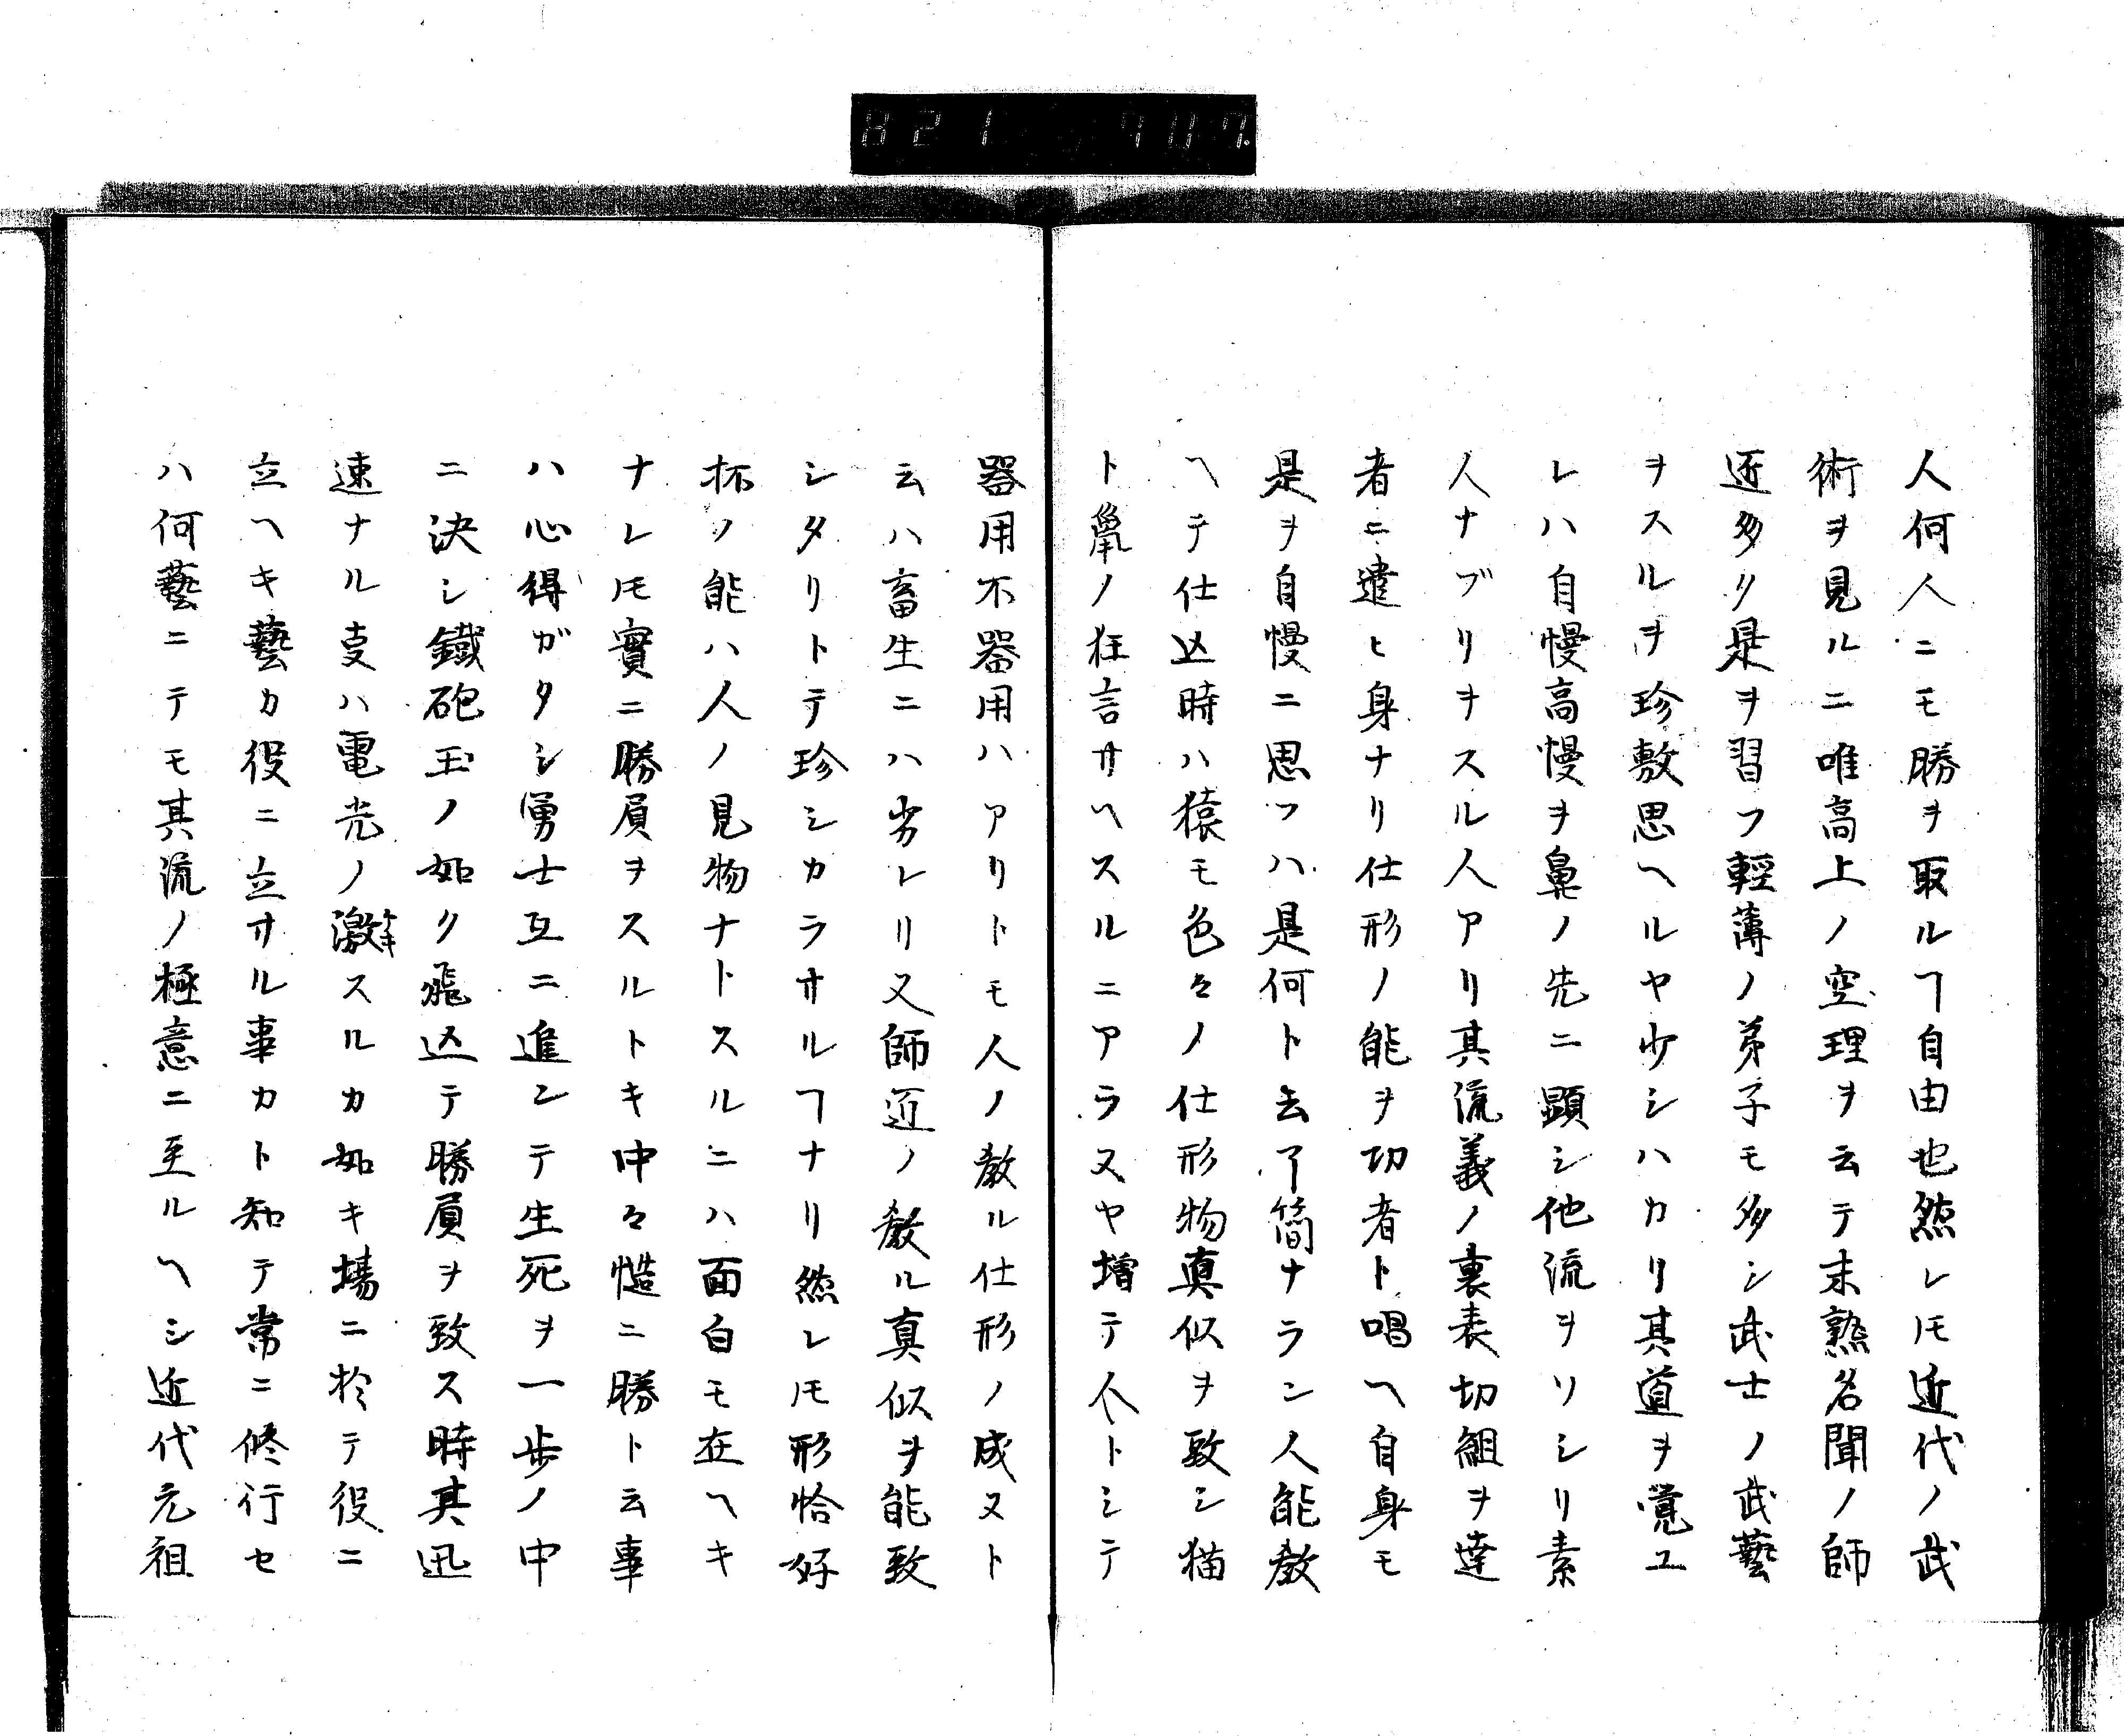 821 907.
人何人ニモ勝ヲ取ルヿ自由也然レ𪜈近代ノ武
術ヲ見ルニ唯高上ノ空理ヲ云テ未熟名聞ノ師
匠多リ是ヲ習フ輕薄ノ弟子モ多シ武士ノ武藝
ヲスルヲ珍敷思ヘルヤ少シハカリ其道ヲ覚ユ
レハ自慢高慢ヲ鼻ノ先ニ顕シ他流ヲソシリ素
人ナブリヲスル人アリ其流義ノ裏表切組ヲ達
者ニ遣ヒ身ナリ仕形ノ能ヲ功者ト唱ヘ自身モ
是ヲ自慢ニ思フハ是何ト云了簡ナラン人能教
ヘテ仕込時ハ猿モ色々ノ仕形物真似ヲ致シ猫
ト鼠ノ狂言サヘスルニアラスヤ増テ人トシテ
器用不器用ハアリトモ人ノ教ル仕形ノ成ヌト
云ハ畜生ニハ劣レリ又師匠ノ教ル真似ヲ能致
シタリトテ珍シカラサルヿナリ然レ𪜈形恰好
抔ノ能ハ人ノ見物ナトスルニハ面白モ在ヘキ
ナレ𪜈實ニ勝負ヲスルトキ中々慥ニ勝ト云事
ハ心得ガタシ勇士互ニ進ンテ生死ヲ一歩ノ中
ニ決シ鐵砲玉ノ如ク飛込テ勝負ヲ致ス時其迅
速ナル叓ハ電光ノ激スルカ如キ場ニ於テ役ニ
立ヘキ藝カ役ニ立サル事カト知テ常ニ修行セ
ハ何藝ニテモ其流ノ極意ニ至ルヘシ近代元祖